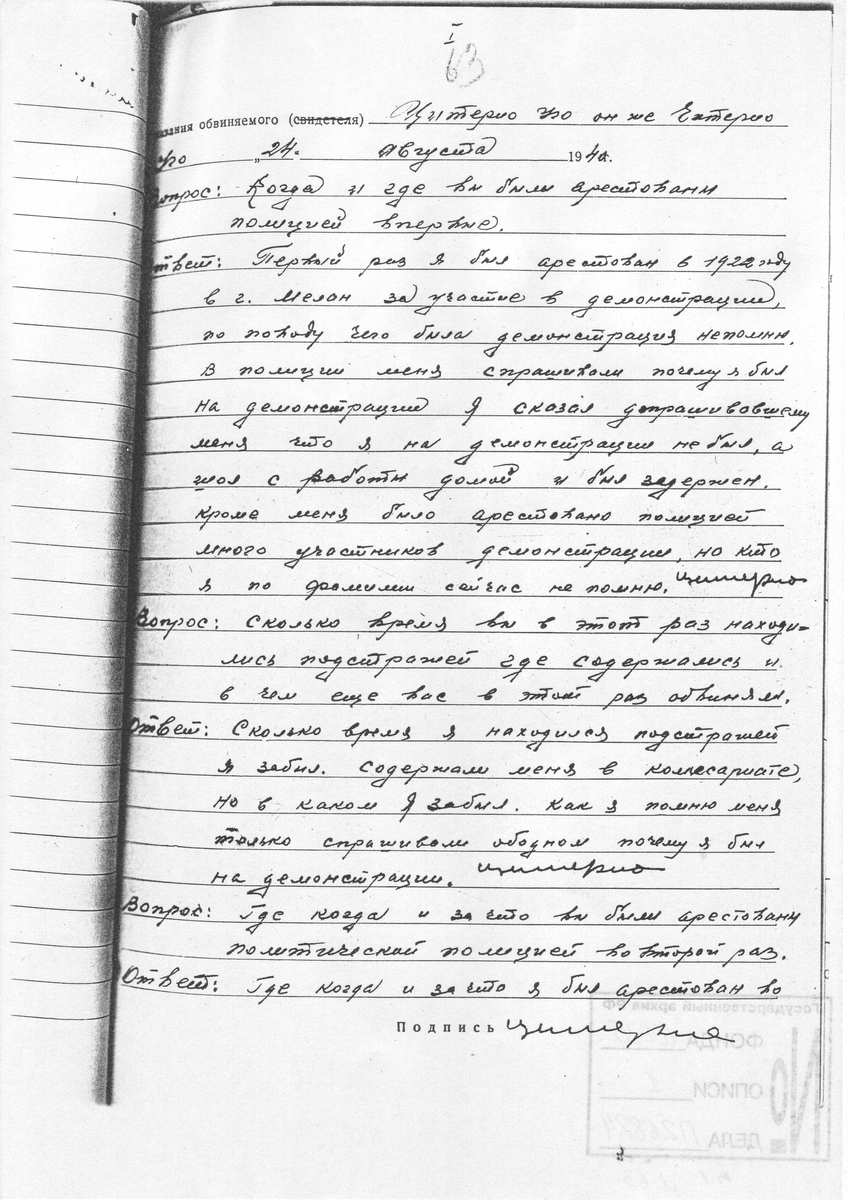 63
азания обвиняемого (свидетеля) Цитерио Уго он же Ектерио
Уго „24" Августа 194 г.
Вопрос: Когда и где вы были арестованы
полицией впервые.
Ответ: Первый раз я был арестован в 1922 году
в г. Мелан за участие в демонстрации,
по поводу чего была демонстрация непомню.
В полиции меня спрашивали почему я был
на демонстрации я сказал допрашивовшему
меня что я на демонстрации не был, а
шол с работы домой и был задержен.
Кроме меня было арестовано полицией
много участников демонстрации, но кто
я по фамилии сейчас не помню. Цитерио
Вопрос: Сколько время вы в этот раз находи-
лись подстражей где содержались и
в чем еще вас в этот раз обвиняли.
Ответ: Сколько время я находился подстражей
я забыл. Содержали меня в комесариате,
но в каком я забыл. Как я помню меня
только спрашивали ободном почему я был
на демонстрации. Цитерио
Вопрос: Где когда и за что вы были арестованы
политической полицией во второй раз.
Ответ: Где когда и за что я был арестован во
Подпись Цитерио
Государственный архив РФ
ФОНДА
ОПИСИ 1
ДЕЛА
№